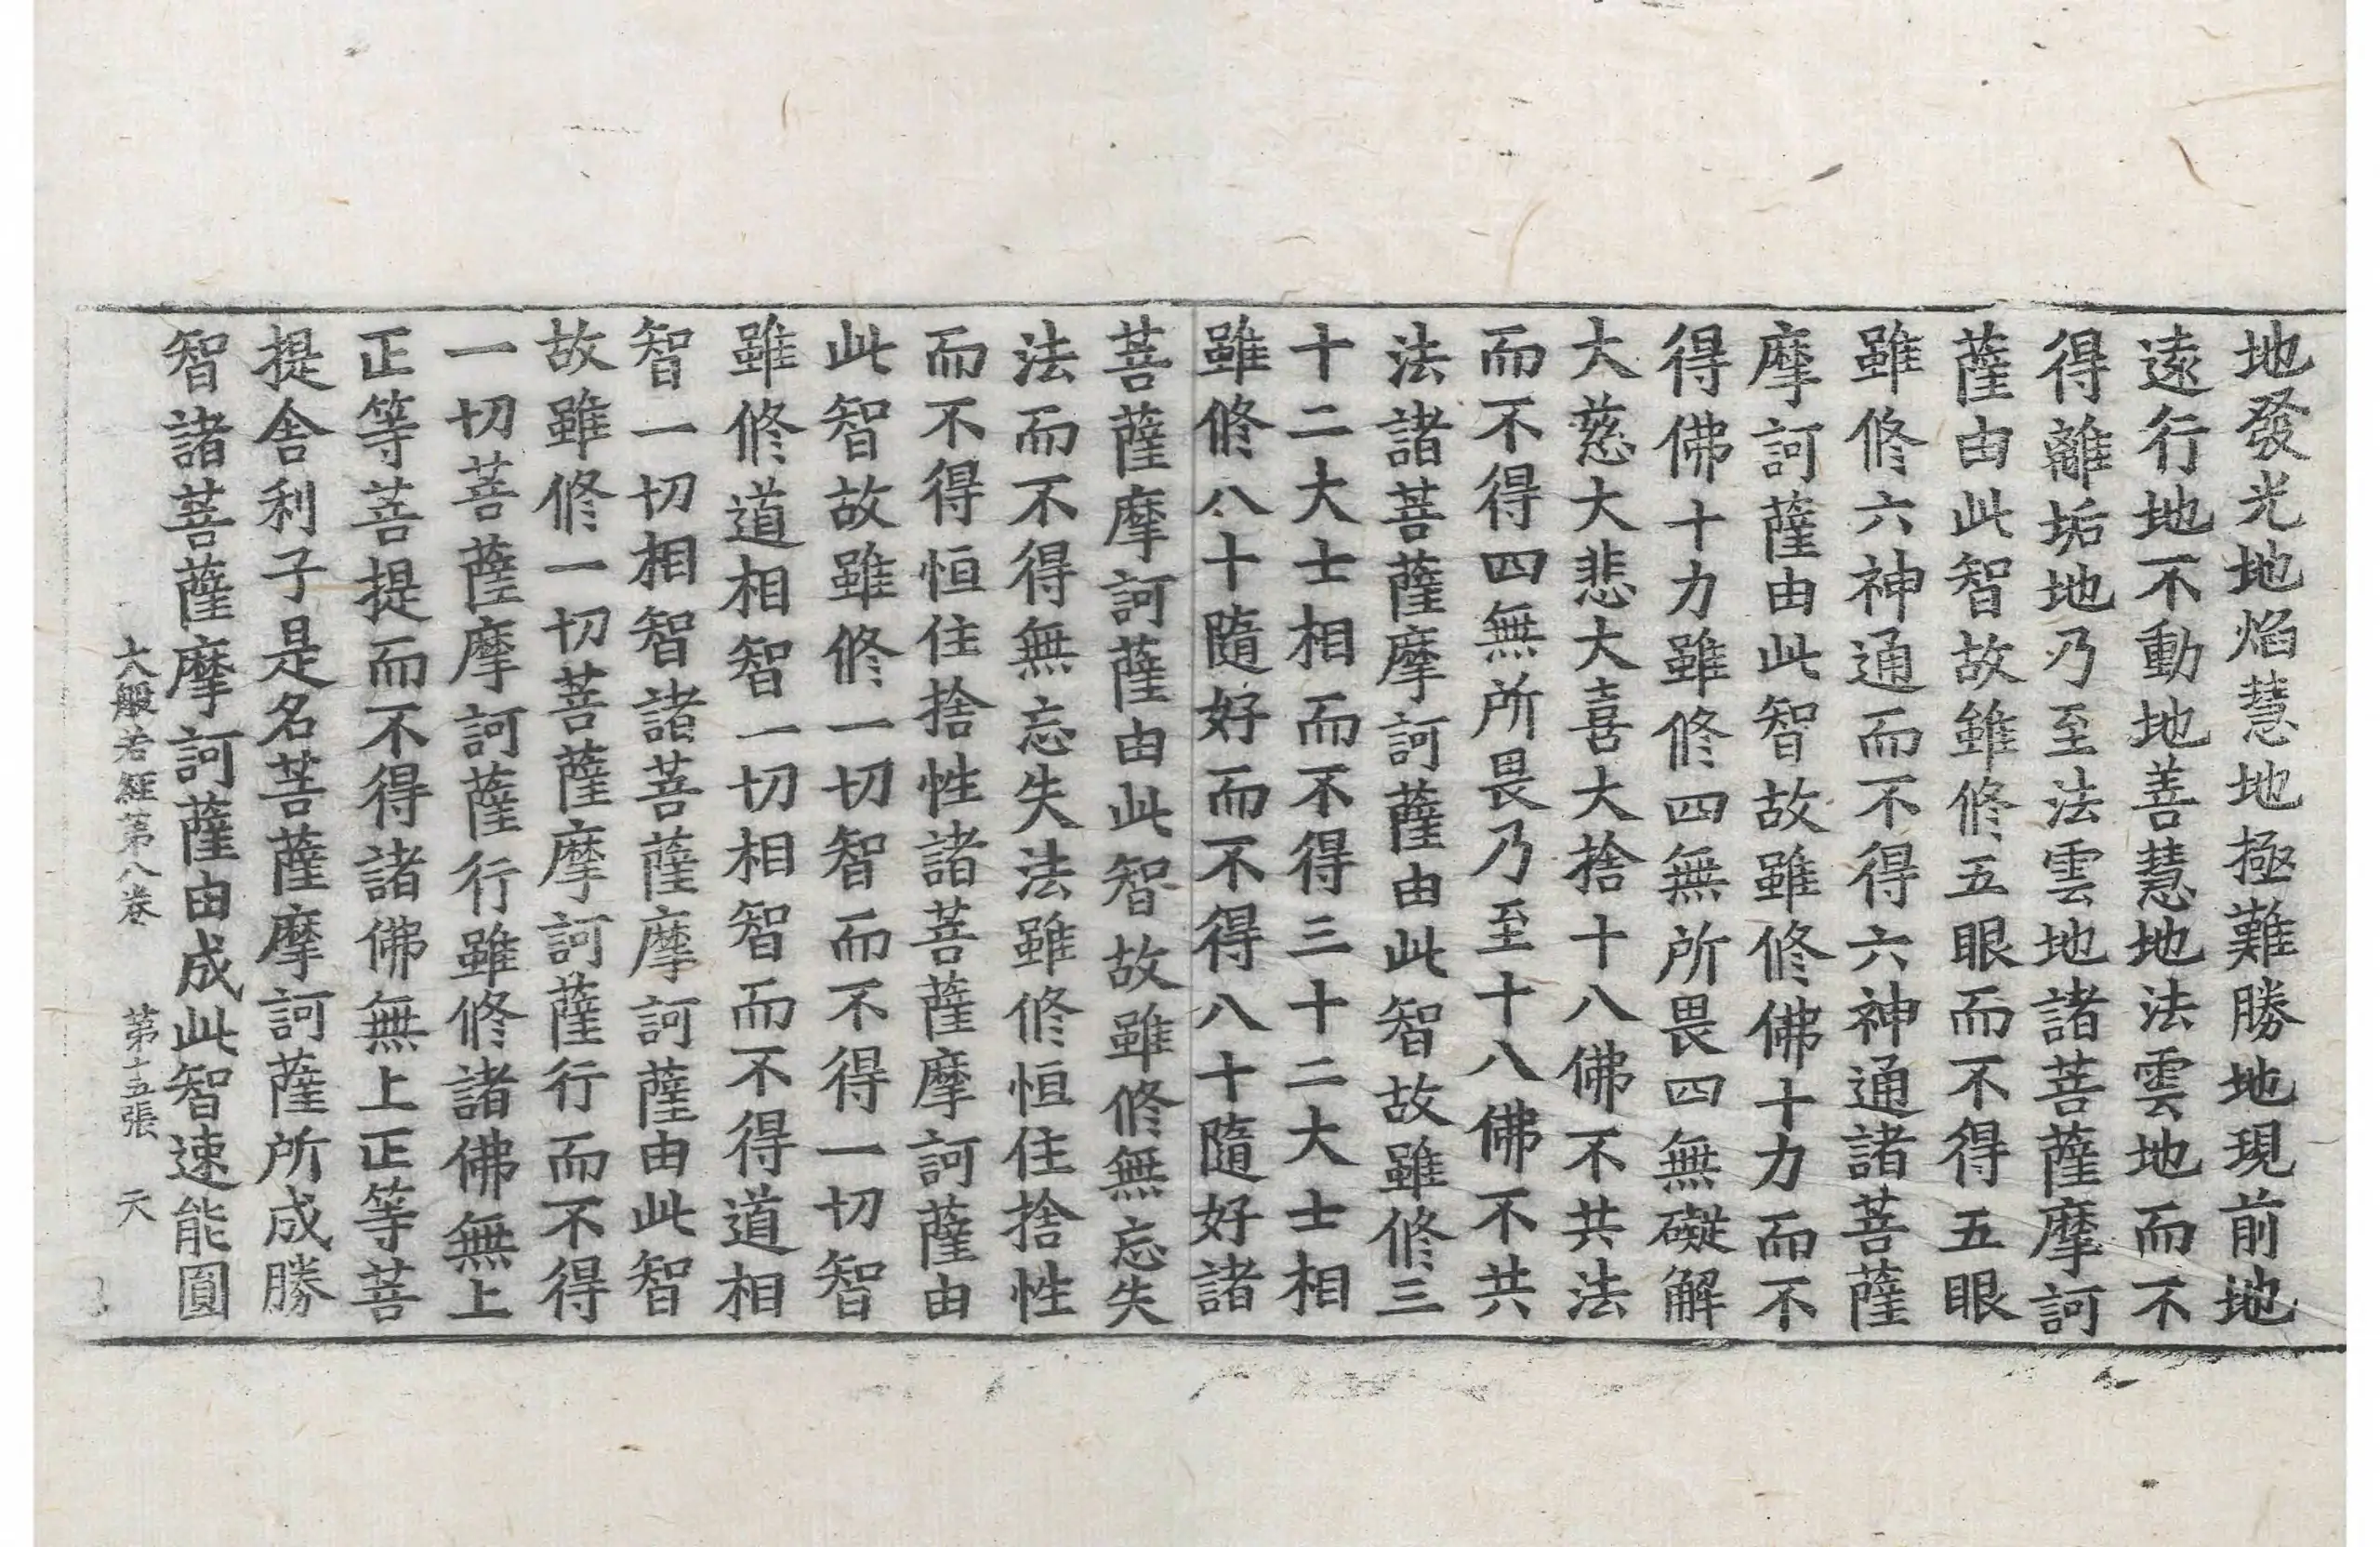 地發光地焰慧地極難勝地現前地
遠行地不動地善慧地法雲地而不
得離垢地乃至法雲地諸菩薩摩訶
薩由此智故雖修五眼而不得五眼
雖修六神通而不得六神通諸菩薩
摩訶薩由此智故雖修佛十力而不
得佛十力雖修四無所畏四無礙解
大慈大悲大喜大捨十八佛不共法
而不得四無所畏乃至十八佛不共
法諸菩薩摩訶薩由此智故雖修三
十二大士相而不得三十二大士相
雖修八十隨好而不得八十隨好諸
菩薩摩訶薩由此智故雖修無忘失
法而不得無忘失法雖修恒住捨性
而不得恒住捨性諸菩薩摩訶薩由
此智故雖修一切智而不得一切智
雖修道相智一切相智而不得道相
智一切相智諸菩薩摩訶薩由此智
故雖修一切菩薩摩訶薩行而不得
一切菩薩摩訶薩行雖修諸佛無上
正等菩提而不得諸佛無上正等菩
提舍利子是名菩薩摩訶薩所成勝
智諸菩薩摩訶薩由成此智速能圓
大般若經第八卷 第十五張 天